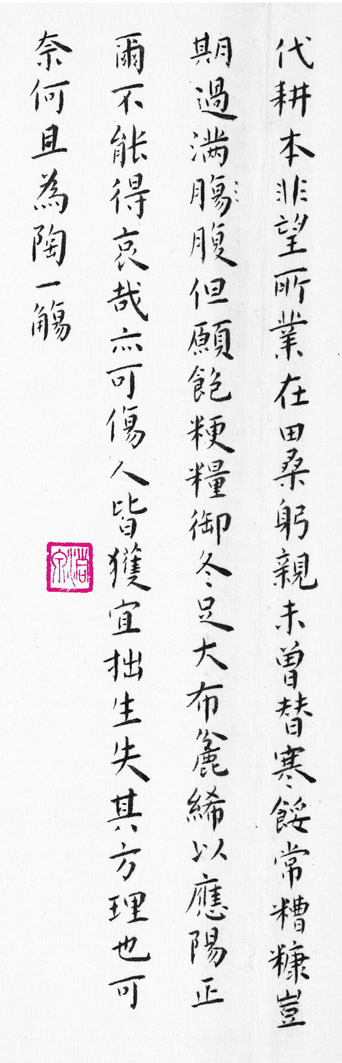 代耕本非望所業在田桑躬親未曾替寒餒常糟糠豈
期過滿腸腹但願飽粳糧御冬足大布麄絺以應陽正
爾不能得哀哉亦可傷人皆獲宜拙生失其方理也可
奈何且為陶一觴